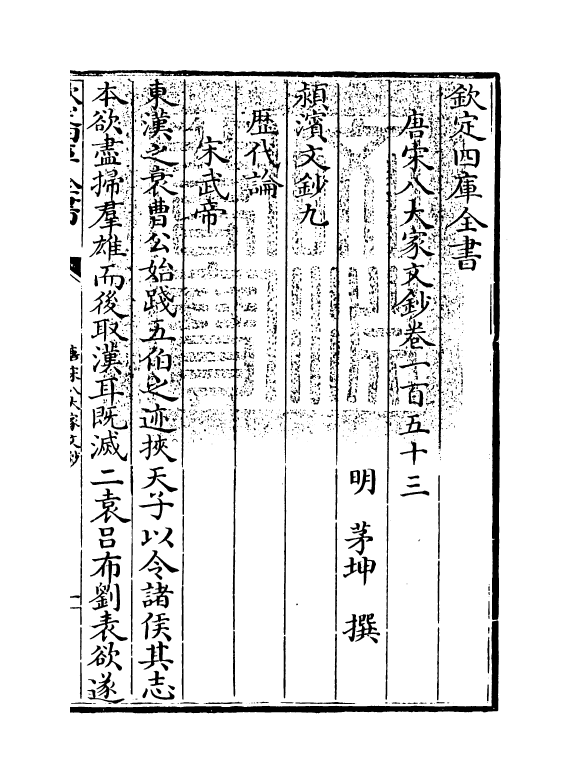 欽定四庫全書
唐宋八大家文鈔卷一百五十三
明 茅坤 撰
潁濱文鈔九
歴代論
宋武帝
東漢之衰曹公始踐五伯之迹挾天子以令諸侯其志
本欲盡掃羣雄而後取漢耳既滅二袁呂布劉表欲遂
欽定四庫全書
唐宋八大家文鈔
一